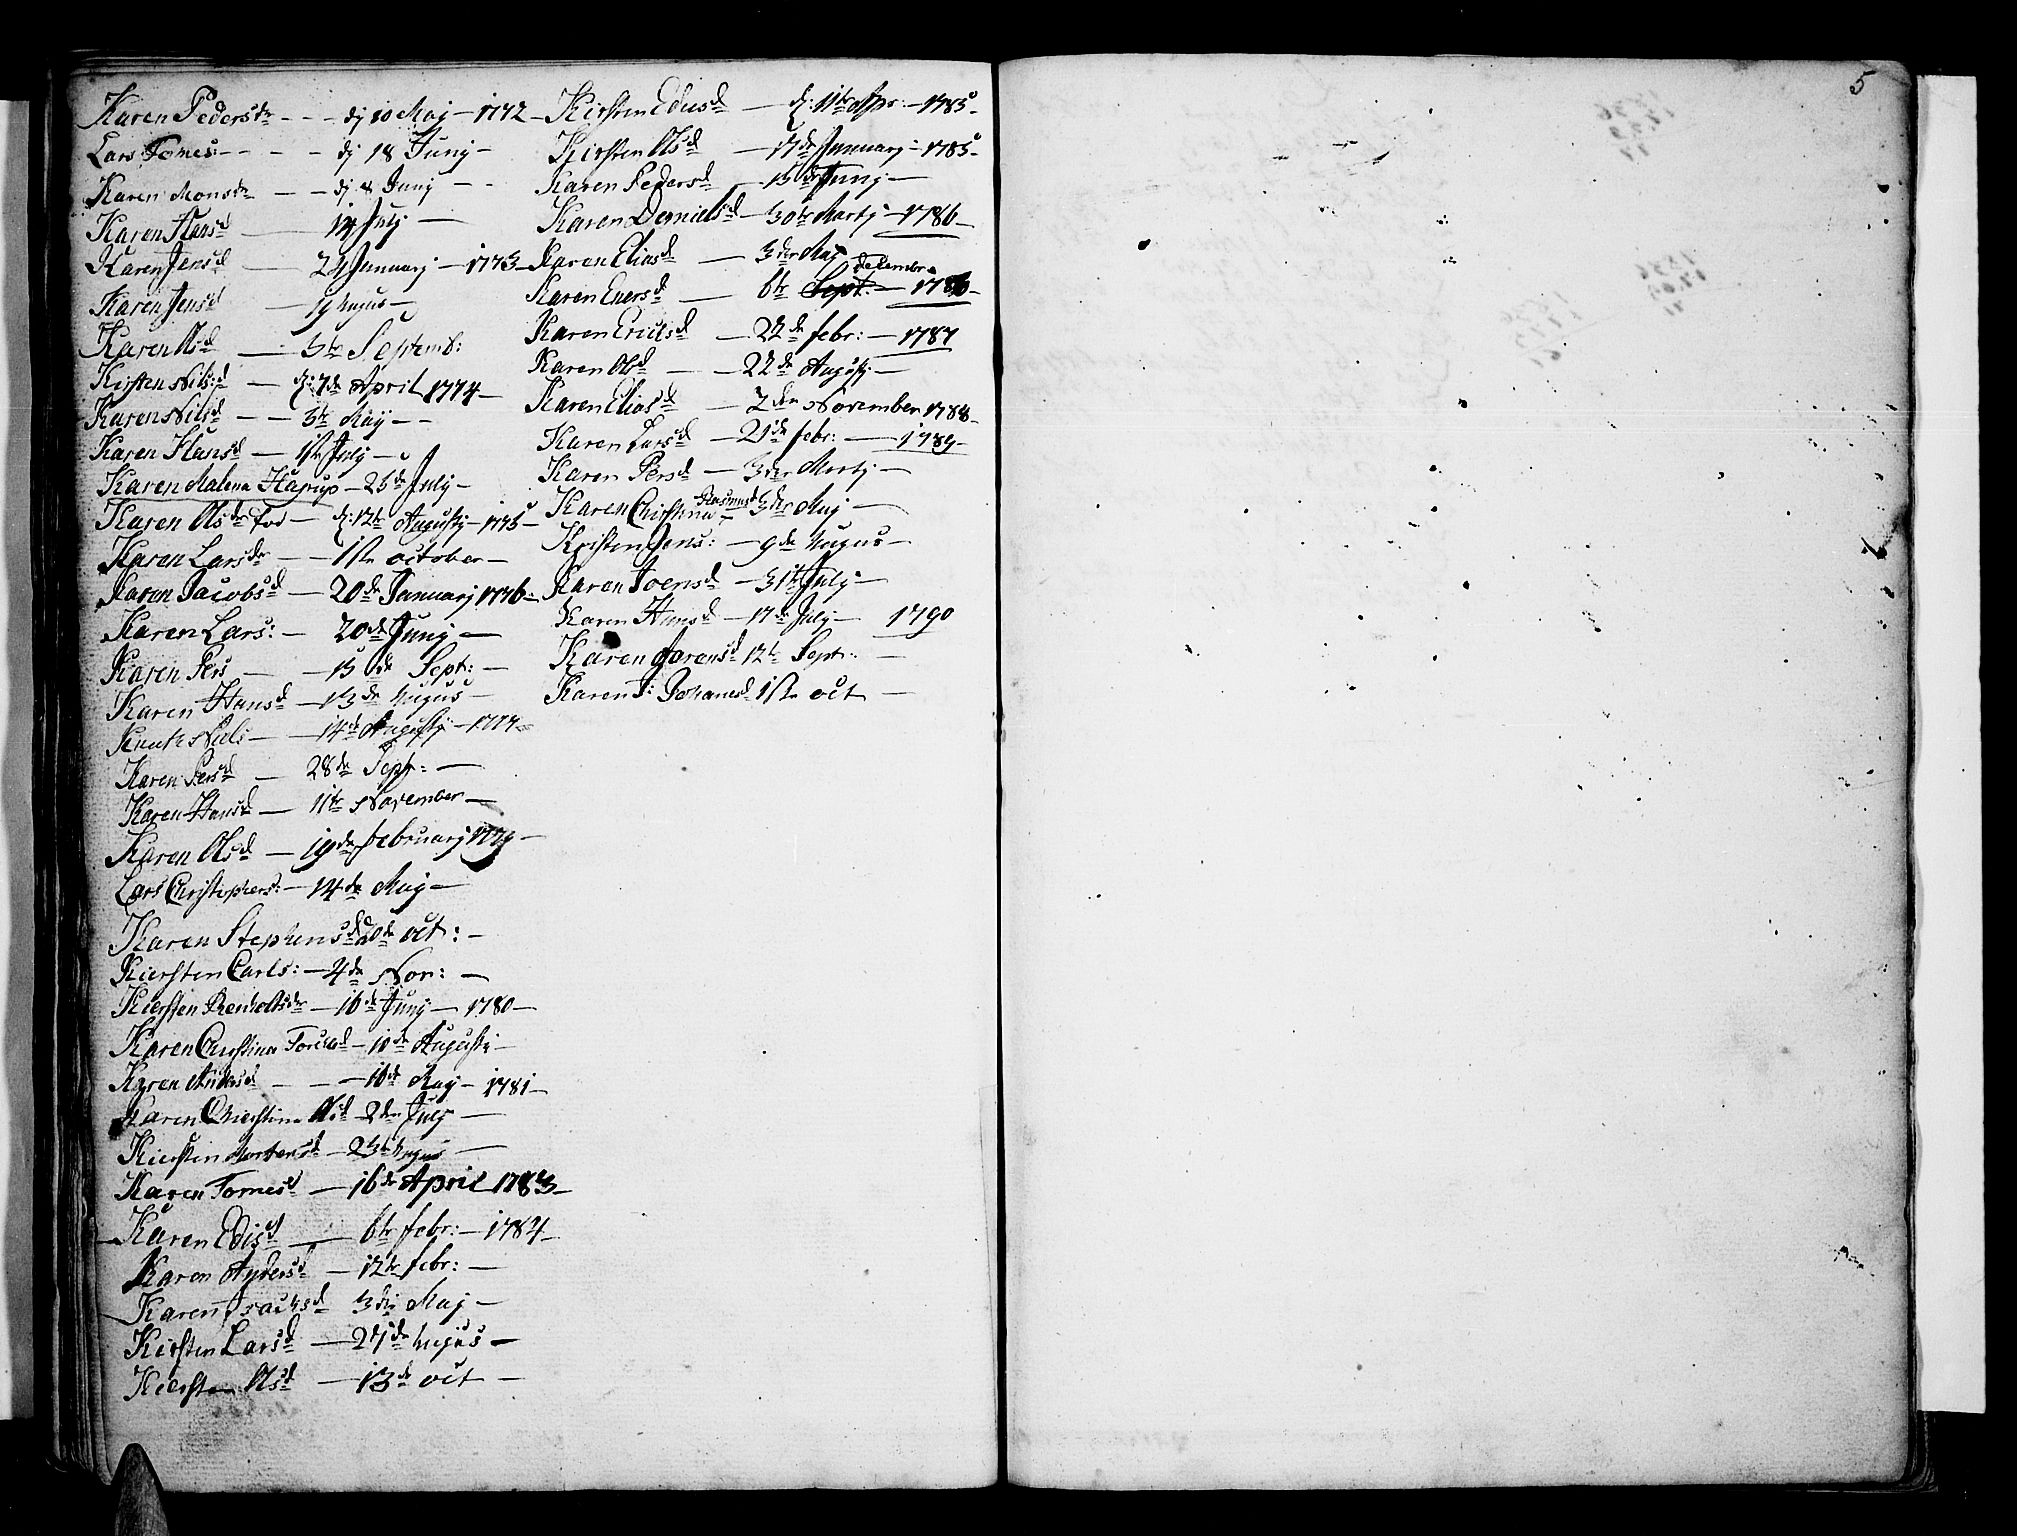 Karen Pedersdr - - - dj 10 Maj - 1772 -
Lars Tomes: - - - - dj 18 Junij -
Karen Monsdr - - dj 8 Junij - -
Karen Hansd — 14 Julj —
Karen Jensd — 24 Januarj - 1773 -
Karen Jensd — 19 Augus -
Karen Olsd — 3te Septemb:
Kirsten Nilsd — d: 7de April 1774 -
Karen Nilsd - - 3te Maij - -
Karen Hansd - 1ste Julij -
Karen Malena Harup - 25de Julij -
Karen Olsdr - d: 12te Augustj - 1775 -
Karen Larsdr - - 1ste october -
Karen Jacobsd — 20de Januarj 1776 -
Karen Lars: - 20de Junij —
Karen Pers — 15de Sept: -
Karen Hansd - 13de Augus -
Knuth Nils - 14de Augustj - 1777
Karen Persd — 28de Sept: —
Karen Hansd — 11te November —
Karen Olsd — 19de februarj 1779 -
Lars Christophers: - 14de Maij —
Karen Stephensd 20de oct: -
Kiersten Carls: - 4de Nov: -
Kiersten Renholtsdr - 16de Junij - 1780 -
Karen Christina - 10de Augusti -
Karen Andersd - - 16de Maij - 1781 -
Karen Chierstina Olsd - 2den Julij —
Kiersten Mortensd - 23de Augus —
Karen Tomesd — 16de April 1783 -
Karen Edisd — 6te febr: - 1784 -
Karen Andersd - 12te febr: —
Karen Isachsd 3die Maj -
Kiersten Larsd — 27de Augus -
Kiersten Olsd — 13de oct -
Kiersten Edisd — d: 11te Apr: - 1785 -
Kiersten Olsd — 17de Januarj - 1785 -
Karen Pedersd - 15de Junij —
Karen Danielsd - 30te Martj - 1786 -
Karen Eliasd — 3die Maj
decembr
Karen Eversd — 6te Sept: - 1786 -
Karen Ericksd — 22de febr: - 1787
Karen Olsd — 22de Augustj -
Karen Eliasd — 2den November 1788 -
Karen Larsd - 21de febr: - 1789 -
Karen Persd - 3die Martj —
Rasmusd
Karen Christina 3die Maj —
Kirsten Jens: - 9de Augus -
Karen Joensd - 31te Julij —
Karen Hansd - 17de Julj - 1790
Karen Jørensd 12te Sept: -
Karen T: Johanesd 1ste oct —
5